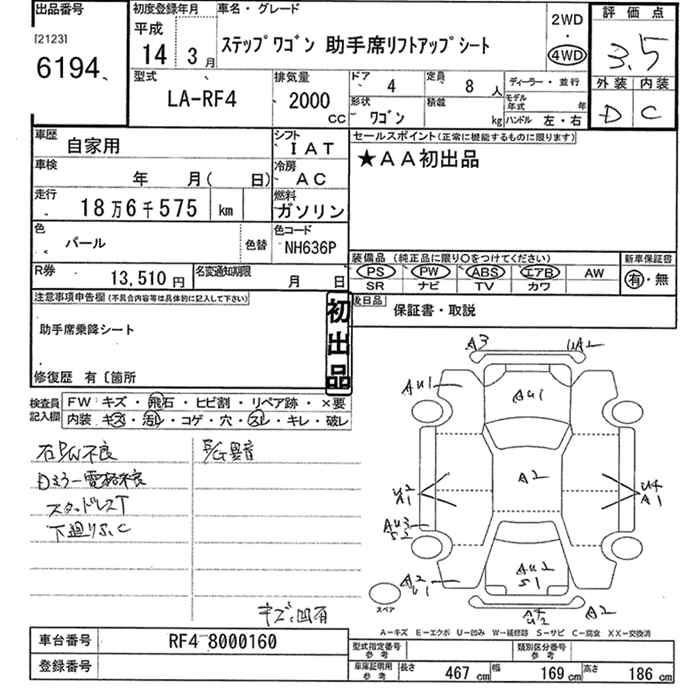 出品番号
[2123]
6194
初度登録年月
平成
14 年 3 月
車名・グレード
ステップワゴン 助手席リフトアップシート
2WD
・
4WD
評価点
3.5
外装 内装
D C
型式
LA-RF4
排気量
2000
CC
ドア 4
定員 8 人
形状 ワゴン
積載 kg
ディーラー・並行
モデル年式 年
ハンドル 左・右
車歴 自家用
シフト IAT
車検 年 月( 日)
冷房 AC
走行 18万6千575 km
燃料 ガソリン
色 パール 色替
色コード NH636P
R券 13,510円
名変通知期限 月 日
セールスポイント(正常に機能するものに限ります)
★AA初出品
装備品 (純正品に限り○をつけてください)
PS PW ABS エアB AW
SR ナビ TV カワ
新車保証書
有・無
後日品 保証書・取説
注意事項申告欄(不具合内容等は具体的に記入して下さい)
助手席乗降シート
修復歴 有〔箇所
初出品
検査員記入欄
FW キズ・飛石・ヒビ割・リペア跡・×要
内装 キズ・汚レ・コゲ・穴・スレ・キレ・破レ
スタッドレスT
下廻りふC
A3
UA2
AU1
AU1
A2
U4
A1
S1
A2
スペア
A−キズ E−エクボ U−凹み W−補修跡 S−サビ C−腐食 XX−交換済
車台番号 RF4-8000160
登録番号
型式指定番号 参考
類別区分番号 参考
車庫証明用 参考
長さ 467 cm
幅 169 cm
高さ 186 cm